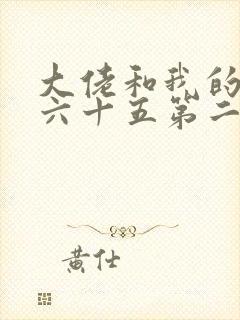 大佬和我的
六十五第二
黄仕